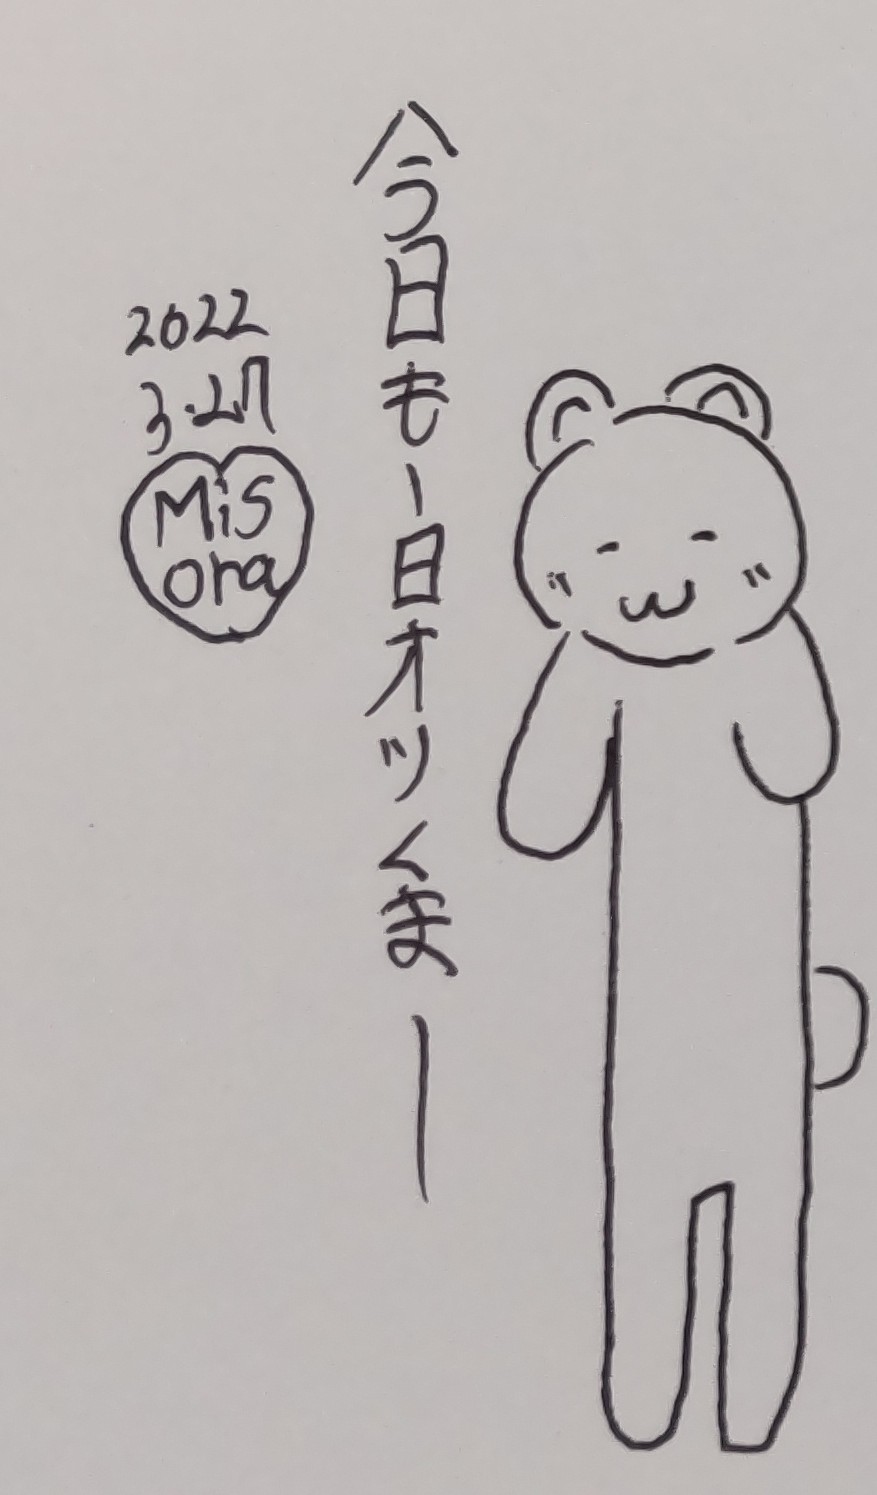 今日も一日オツくまー
2022
3.27
Mis
ora